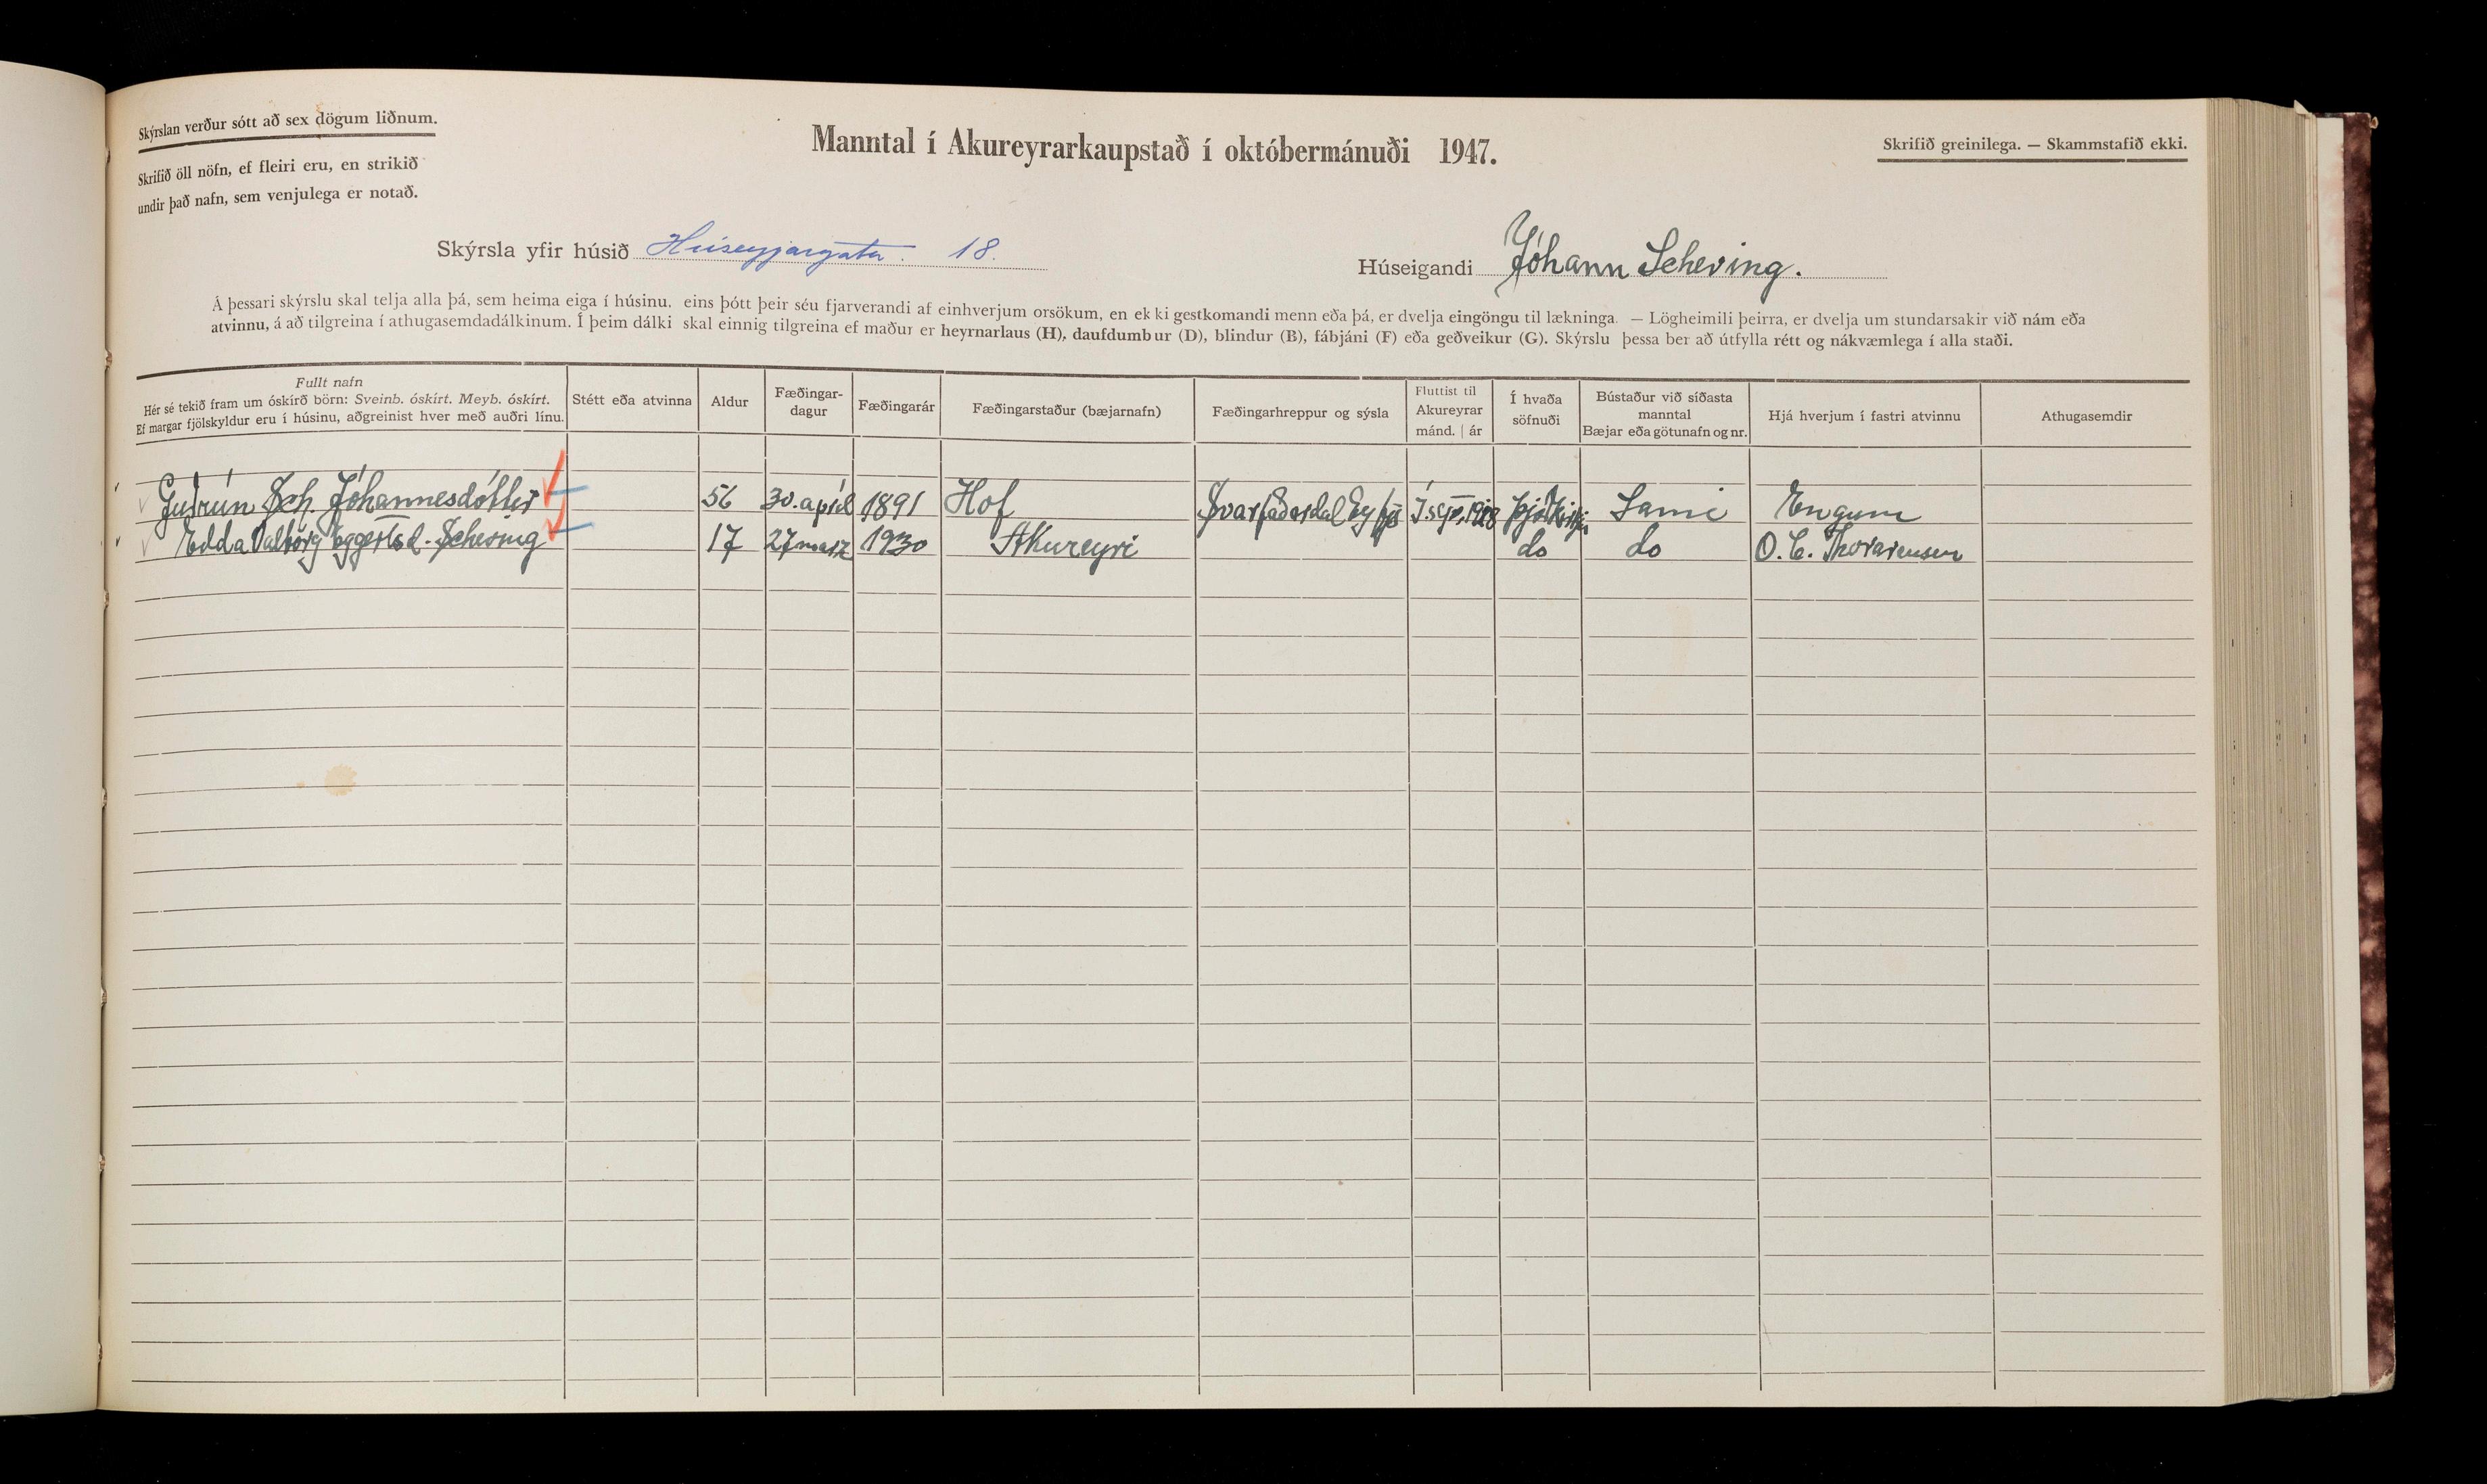 Skýrslan verður sótt að sex dögum liðnum.
Skrifið öll nöfn, ef fleiri eru, en strikið
undir það nafn, sem venjulega er notað.
Manntal í Akureyrarkaupstað í októbermánuði 1947.
Skrifið greinilega. — Skammstafið ekki.
Skýrsla yfir húsið Húseyjargata 18.
Húseigandi Jóhann Scheving.
Á þessari skýrslu skal telja alla þá, sem heima eiga í húsinu, eins þótt þeir séu fjarverandi af einhverjum orsökum, en ekki gestkomandi menn eða þá, er dvelja eingöngu til lækninga. — Lögheimili þeirra, er dvelja um stundarsakir við nám eða
atvinnu, á að tilgreina í athugasemdadálkinum. Í þeim dálki skal einnig tilgreina ef maður er heyrnarlaus (H), daufdumbur (D), blindur (B), fábjáni (F) eða geðveikur (G). Skýrslu þessa ber að útfylla rétt og nákvæmlega í alla staði.
Fullt nafn
Hér sé tekið fram um óskírð börn: Sveinb. óskírt. Meyb. óskírt.
Ef margar fjölskyldur eru í húsinu, aðgreinist hver með auðri línu.
Stétt eða atvinna
Aldur
Fæðingar-
dagur
Fæðingarár
Fæðingarstaður (bæjarnafn)
Fæðingarhreppur og sýsla
Fluttist til
Akureyrar
mánd. | ár
Í hvaða
söfnuði
Bústaður við síðasta
manntal
Bæjar eða götunafn og nr.
Hjá hverjum í fastri atvinnu
Athugasemdir
Guðrún Sch. Jóhannesdóttir 56 30. apríl 1891 Hof Svarfaðardal Eyfjs Í sep. 1928 Þjóðkirkju Sami Engum
Edda Valborg Eggertsd. Scheving 17 27 marz 1930 Akureyri do do O. C. Thorarensen